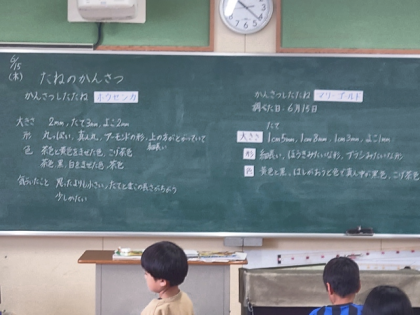 6/15
(木)
たねのかんさつ
かんさつしたたね ホウセンカ
大きさ 2mm,たて3mm,よこ2mm
形 丸っぽい,真ん丸,アーモンドの形,上の方がとがっていて
細長い
色 茶色と黄色をまぜた色,こげ茶色
茶色,黒,白をまぜた色,茶色
気づいたこと 思ったより小さい,たてとよこの長さがちがう
少しかたい
かんさつしたたね マリーゴールド
調べた日:6月15日
たて
大きさ 1cm5mm,1cm8mm,1cm3mm,よこ1mm
形 細長い,ほうきみたいな形,ブラシみたいな形
色 黄色と黒,はしがおうど色で真ん中が黒色,こげ茶色